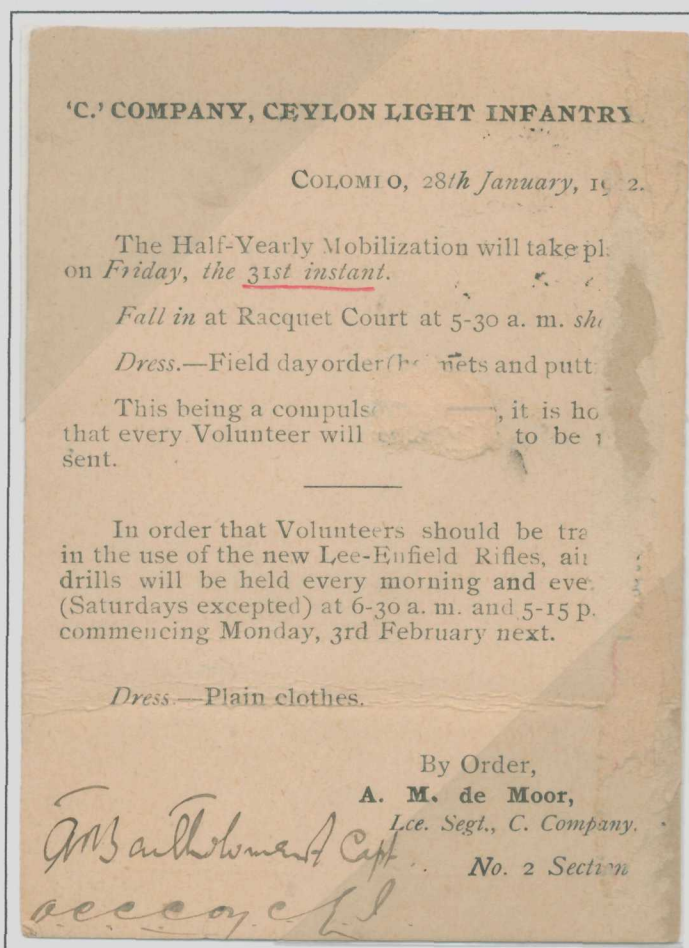 'C.' COMPANY, CEYLON LIGHT INFANTRY.
COLOMBO, 28th January, 19 2.
The Half-Yearly Mobilization will take pl
on Friday, the 31st instant.
Fall in at Racquet Court at 5-30 a. m.
Dress.—Field day order (h mets and putt
This being a compuls , it is ho
that every Volunteer will to be
sent.
In order that Volunteers should be tra
in the use of the new Lee-Enfield Rifles, ai
drills will be held every morning and eve
(Saturdays excepted) at 6-30 a. m. and 5-15 p.
commencing Monday, 3rd February next.
Dress.—Plain clothes.
By Order,
A. M. de Moor,
Lce. Segt., C. Company.
No. 2 Section
Bartholomeusz Capt